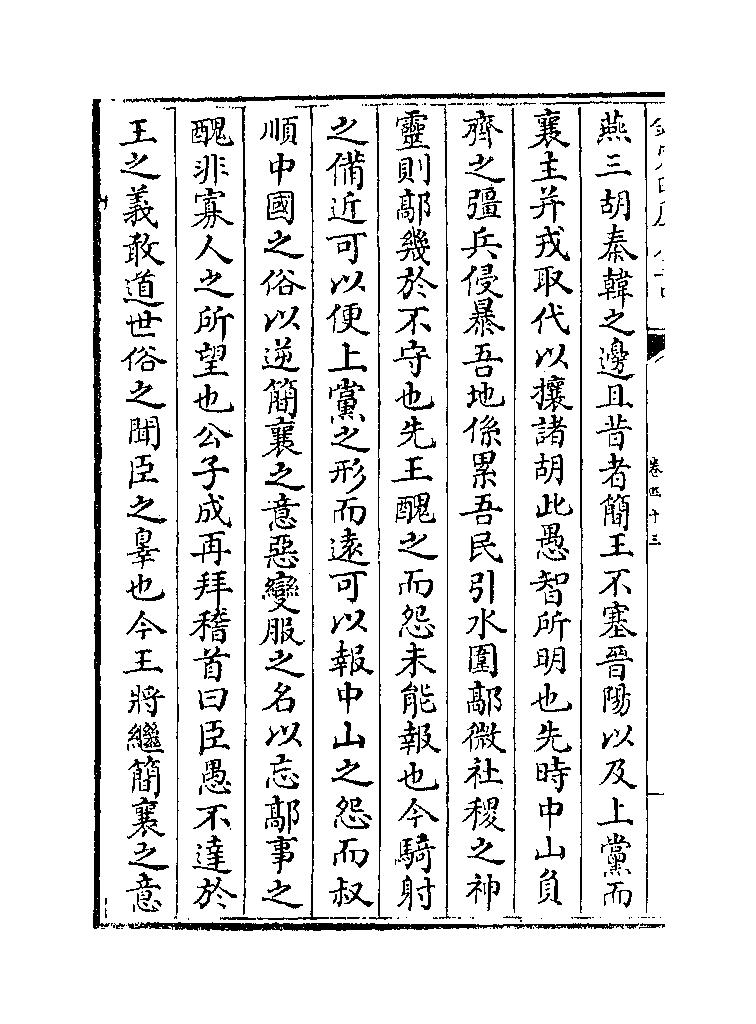 卷四十三
燕三胡秦韓之邊且昔者簡王不塞晉陽以及上黨而
襄主并戎取代以攘諸胡此愚智所明也先時中山負
齊之彊兵侵暴吾地係累吾民引水圍鄗微社稷之神
靈則鄗幾於不守也先王醜之而怨未能報也今騎射
之備近可以便上黨之形而遠可以報中山之怨而叔
順中國之俗以逆簡襄之意惡變服之名以忘鄗事之
醜非寡人之所望也公子成再拜稽首曰臣愚不達於
王之義敢道世俗之聞臣之辠也今王將繼簡襄之意